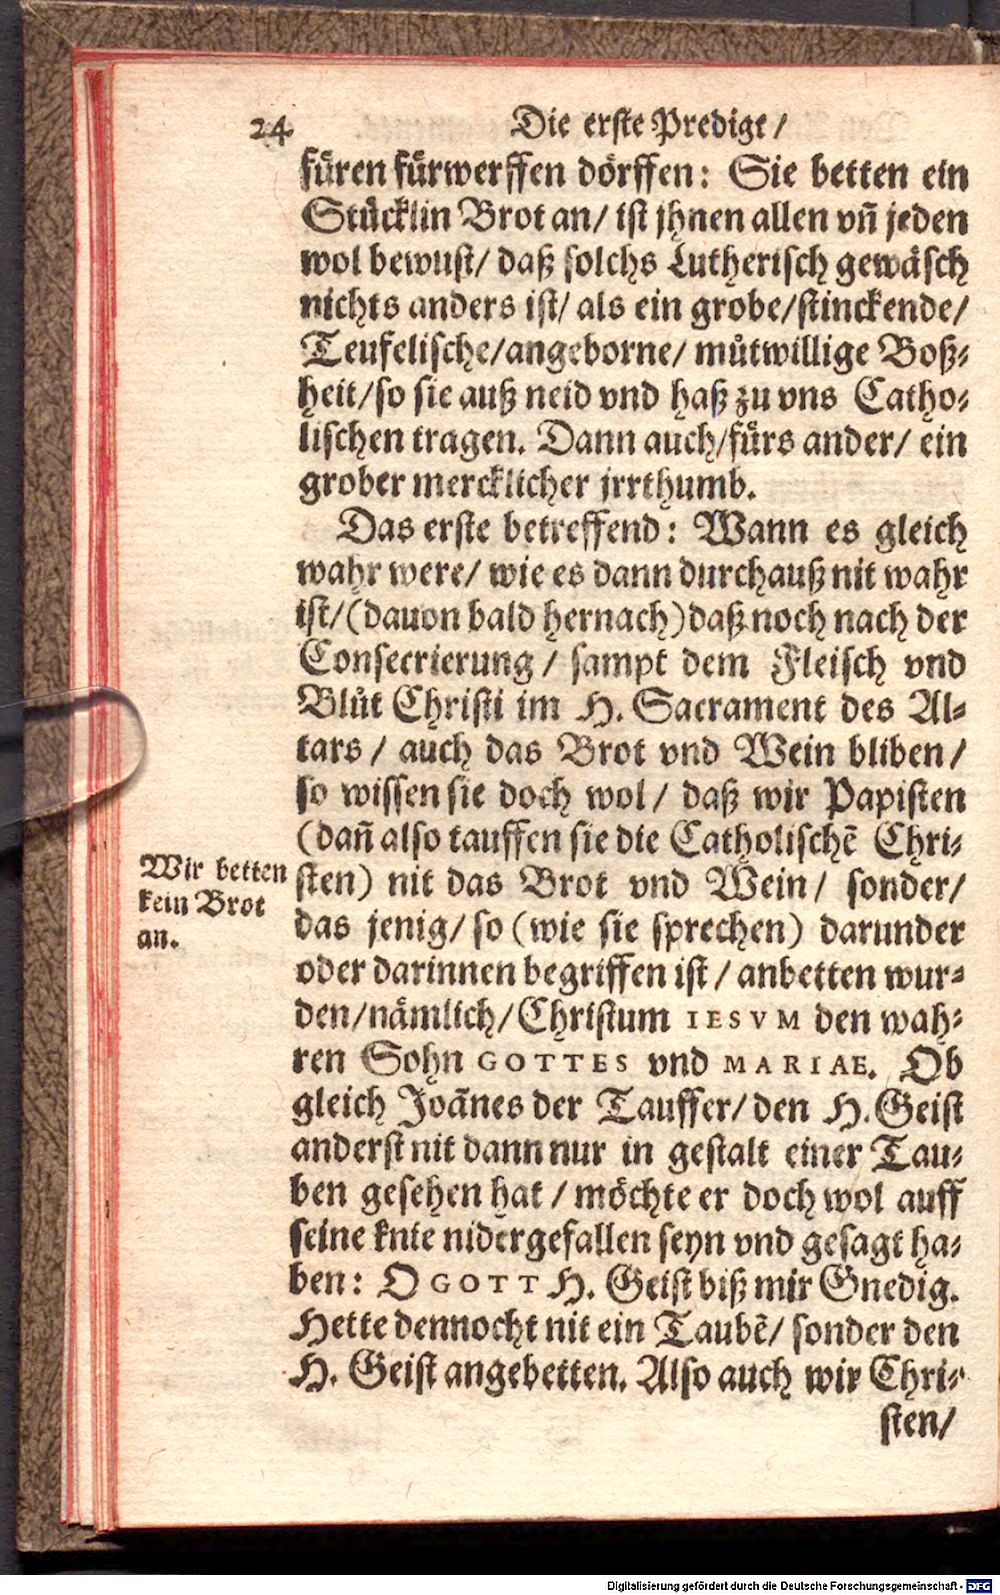 24 Die erste Predigt /
fuͤren fuͤrwerffen doͤrffen: Sie betten ein
Stuͤcklin Brot an/ ist jhnen allen vñ jeden
wol bewust/ daß solchs Lutherisch gewaͤsch
nichts anders ist/ als ein grobe/stinckende/
Teufelische/angeborne/ muͤtwillige Boß-
heit/so sie auß neid vnd haß zu vns Catho-
lischen tragen. Dann auch/fuͤrs ander/ ein
grober mercklicher jrrthumb.
Das erste betreffend: Wann es gleich
wahr were/ wie es dann durchauß nit wahr
ist/(dauon bald hernach)daß noch nach der
Consecrierung / sampt dem Fleisch vnd
Bluͤt Christi im H. Sacrament des Al-
tars / auch das Brot vnd Wein bliben/
so wissen sie doch wol/ daß wir Papisten
(dañ also tauffen sie die Catholischẽ Chri-
sten) nit das Brot vnd Wein/ sonder/
das jenig/ so (wie sie sprechen) darunder
oder darinnen begriffen ist / anbetten wur-
den/naͤmlich/Christum IESVM den wah-
ren Sohn GOTTES vnd MARIAE. Ob
gleich Joãnes der Tauffer/ den H. Geist
anderst nit dann nur in gestalt einer Tau-
ben gesehen hat / moͤchte er doch wol auff
seine knie nidergefallen seyn vnd gesagt ha-
ben: O GOTT H. Geist biß mir Gnedig.
Hette dennocht nit ein Taubẽ/ sonder den
H. Geist angebetten. Also auch wir Chri-
sten/
Wir betten
kein Brot
an.
Digitalisierung gefördert durch die Deutsche Forschungsgemeinschaft - DFG